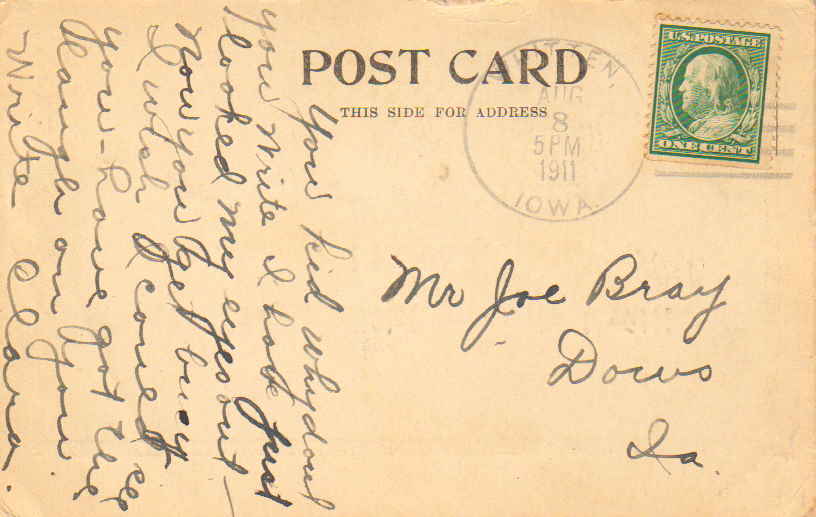 POST CARD
THIS SIDE FOR ADDRESS
WHITTEN,
AUG
8
5 PM
1911
IOWA.
U.S. POSTAGE
ONE CENT
You kid why dont
you write I have just
looked my eyes out –
Now you get busy
I wish I could see
you – have got the
laugh on you
Write Clara.
Mr Joe Bray
Dows
Ia.